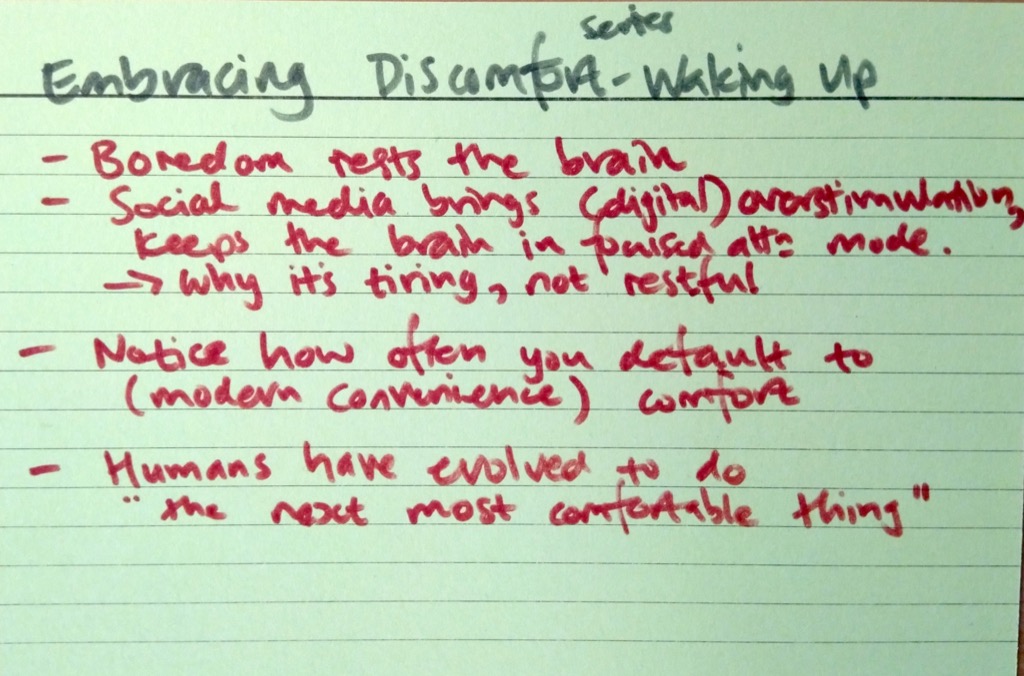 series
Embracing Discomfort - Waking Up
- Boredom rests the brain
- Social media brings (digital) overstimulation,
keeps the brain in focused attn mode.
→ Why it's tiring, not restful
- Notice how often you default to
(modern convenience) comfort
- Humans have evolved to do
"the next most comfortable thing"